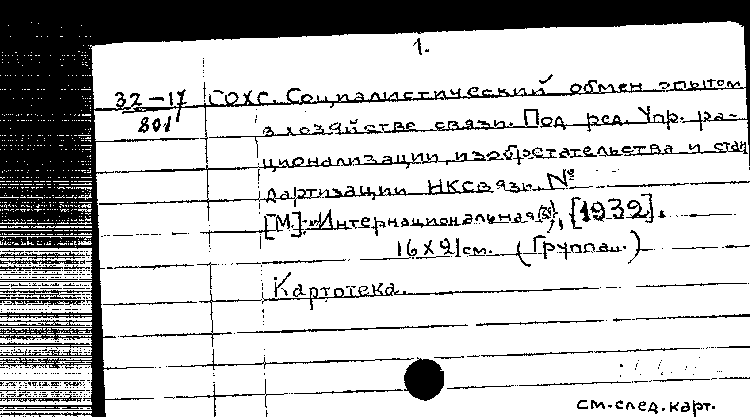 1.
32-17 СОХС. Социалистический обмен опытом
801 в хозяйстве связи. Под ред. Упр. ра-
ционализации, изобретательства и стан
дартизации НКСвязи. №
[М.]: "Интернациональная , [1932].
16x21 см. (Группа .)
Картотека.
см. след. карт.